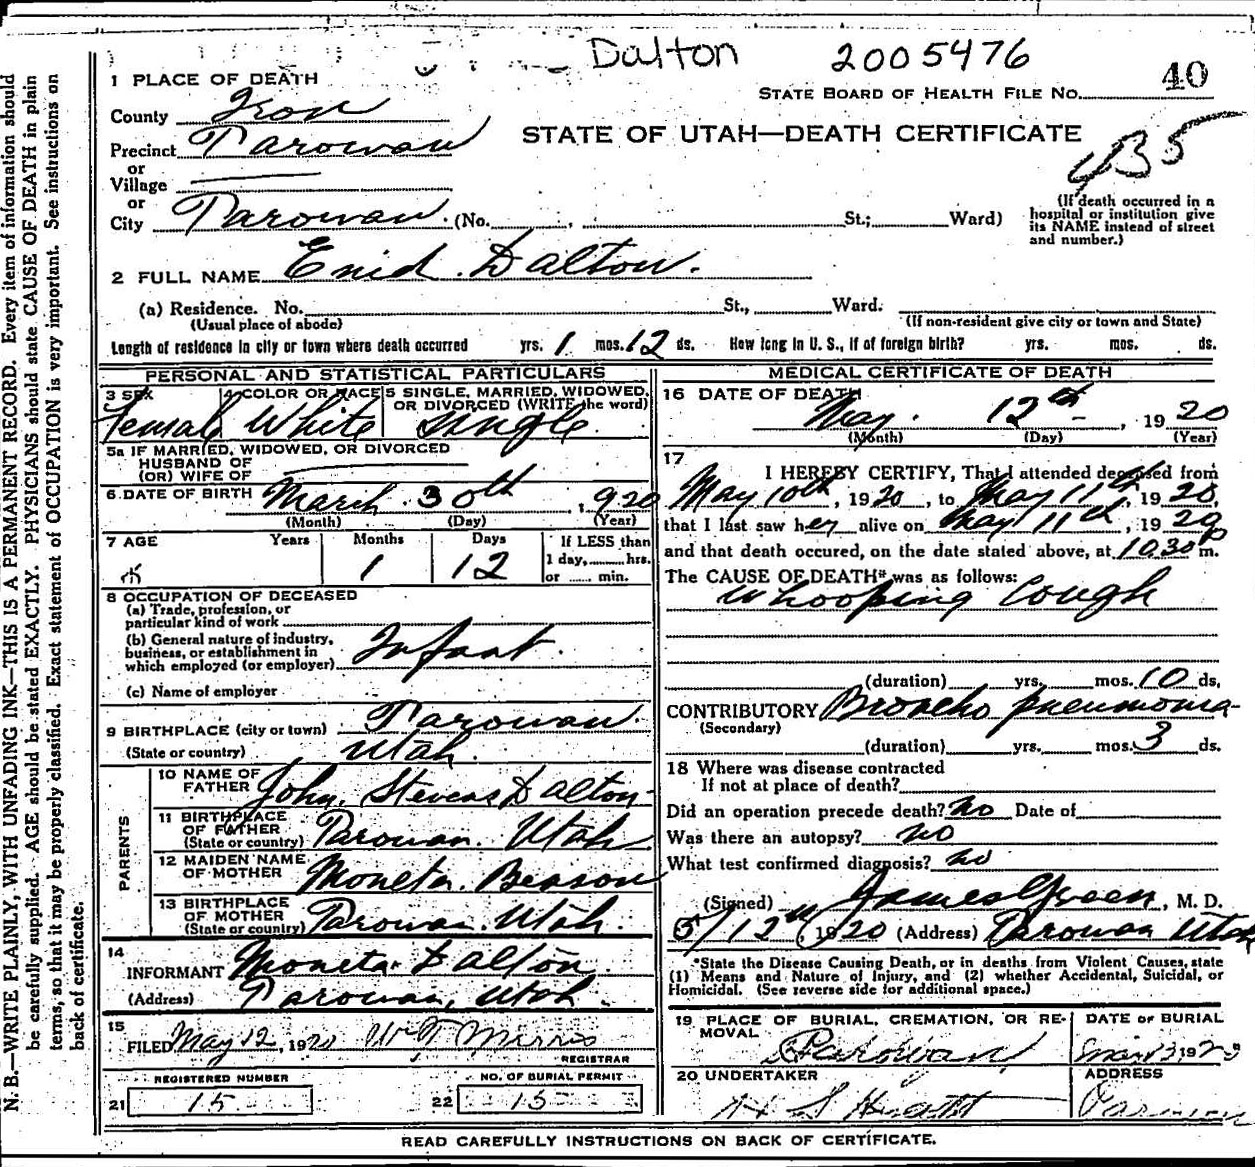 Dalton 2005476
1 PLACE OF DEATH
STATE BOARD OF HEALTH FILE No. 40
County Iron
STATE OF UTAH—DEATH CERTIFICATE
435
Precinct Parowan
or
Village
or
City Parowan. (No. , St.; Ward)
(If death occurred in a
hospital or institution give
its NAME instead of street
and number.)
2 FULL NAME Enid Dalton.
(a) Residence. No. St., Ward.
(Usual place of abode) (If non-resident give city or town and State)
Length of residence in city or town where death occurred yrs. 1 mos. 12 ds. How long in U. S., if of foreign birth? yrs. mos. ds.
PERSONAL AND STATISTICAL PARTICULARS
3 SEX 4 COLOR OR RACE 5 SINGLE, MARRIED, WIDOWED,
OR DIVORCED (WRITE the word)
Female White Single
5a IF MARRIED, WIDOWED, OR DIVORCED
HUSBAND OF
(OR) WIFE OF
6 DATE OF BIRTH March 30th, 1920
(Month) (Day) (Year)
7 AGE Years Months Days If LESS than
1 day, hrs.
1 12 or min.
8 OCCUPATION OF DECEASED
(a) Trade, profession, or
particular kind of work
(b) General nature of industry,
business, or establishment in
which employed (or employer) Infant.
(c) Name of employer
9 BIRTHPLACE (city or town) Parowan.
(State or country) Utah.
PARENTS
10 NAME OF
FATHER John Stevens Dalton
11 BIRTHPLACE
OF FATHER
(State or country) Parowan. Utah
12 MAIDEN NAME
OF MOTHER Moneta. Benson
13 BIRTHPLACE
OF MOTHER
(State or country) Parowan. Utah.
14
INFORMANT Moneta Dalton
(Address) Parowan, Utah.
15
FILED May 12, 1920
REGISTRAR
REGISTERED NUMBER NO. OF BURIAL PERMIT
21 15 22 15
MEDICAL CERTIFICATE OF DEATH
16 DATE OF DEATH
May. 12th, 1920
(Month) (Day) (Year)
17
I HEREBY CERTIFY, That I attended deceased from
May 10th, 1920, to May 11th, 1920,
that I last saw her alive on May 11th, 1920
and that death occured, on the date stated above, at 10.30 p m.
The CAUSE OF DEATH* was as follows:
Whooping Cough
(duration) yrs. mos. 10 ds.
CONTRIBUTORY Broncho pneumonia
(Secondary)
(duration) yrs. mos. 3 ds.
18 Where was disease contracted
If not at place of death?
Did an operation precede death? No Date of
Was there an autopsy? No
What test confirmed diagnosis? No
(Signed) James Green, M. D.
5/12th, 1920 (Address) Parowan Utah
*State the Disease Causing Death, or in deaths from Violent Causes, state
(1) Means and Nature of Injury, and (2) whether Accidental, Suicidal, or
Homicidal. (See reverse side for additional space.)
19 PLACE OF BURIAL, CREMATION, OR RE-
MOVAL
Parowan
DATE OF BURIAL
May 13 1920
20 UNDERTAKER
ADDRESS
Parowan
READ CAREFULLY INSTRUCTIONS ON BACK OF CERTIFICATE.
N. B.—WRITE PLAINLY, WITH UNFADING INK—THIS IS A PERMANENT RECORD. Every item of information should
be carefully supplied. AGE should be stated EXACTLY. PHYSICIANS should state CAUSE OF DEATH in plain
terms, so that it may be properly classified. Exact statement of OCCUPATION is very important. See instructions on
back of certificate.